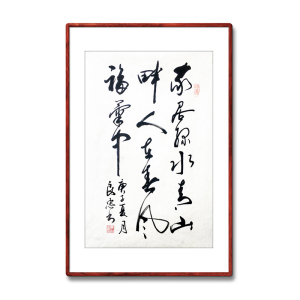 家居绿水青山
畔人在春风
福氣中
庚子夏月
良忠书